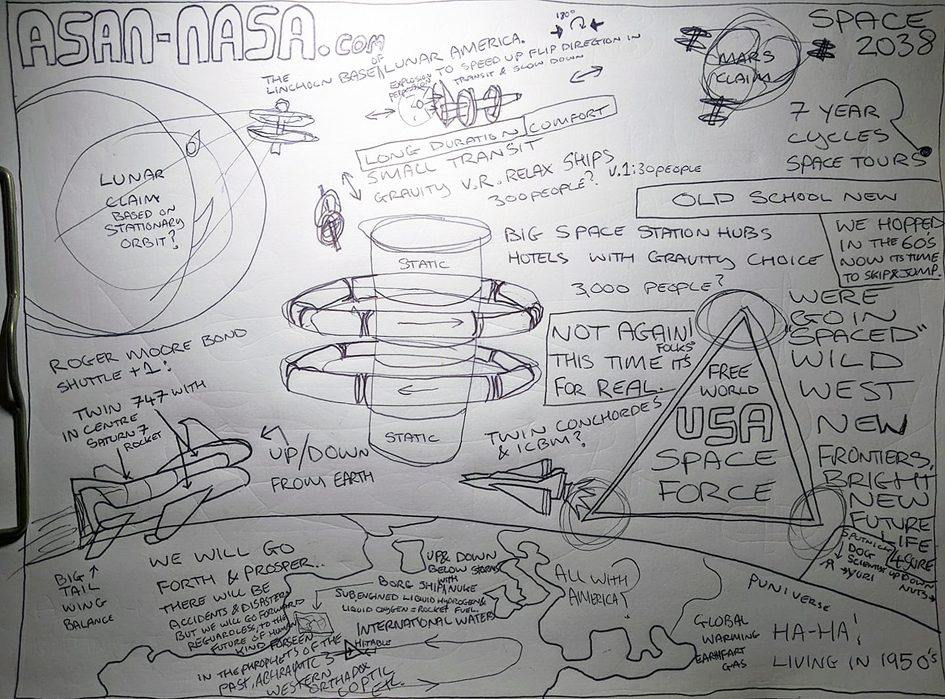 ASAN-NASA.COM
THE
LINCHOLN BASE OF LUNAR AMERICA.
EXPLOSION
TO SPEED UP FLIP DIRECTION IN
TRANSIT & SLOW DOWN
180°
MARS
CLAIM
SPACE
2038
7 YEAR
CYCLES
SPACE TOURS
LUNAR
CLAIM
BASED ON
STATIONARY
ORBIT?
LONG DURATION COMFORT
SMALL TRANSIT
GRAVITY V.R. RELAX SHIPS
300 PEOPLE? V.1:30 PEOPLE
OLD SCHOOL NEW
WE HOPPED
IN THE 60S
NOW ITS TIME
TO SKIP & JUMP.
STATIC
BIG SPACE STATION HUBS
HOTELS WITH GRAVITY CHOICE
3,000 PEOPLE?
NOT AGAIN!
FOLKS
THIS TIME ITS
FOR REAL.
STATIC
FREE
WORLD
USA
SPACE
FORCE
WERE
GO IN
"SPACED"
WILD
WEST
NEW
FRONTIERS,
BRIGHT
NEW
FUTURE
LIFE
4 SURE
ROGER MOORE BOND
SHUTTLE +1:
TWIN 747 WITH
IN CENTRE
SATURN 7
ROCKET
UP/DOWN
FROM EARTH
TWIN CONCHORDES
& ICBM?
SPUTNICK
DOG
YURI
UP DOWN
NUTS
BIG
TAIL
WING
BALANCE
WE WILL GO
FORTH & PROSPER..
THERE WILL BE
ACCIDENTS & DISASTERS
BUT WE WILL GO FORWARD
REGUARDLESS, TO THE
FUTURE OF HUMAN
KIND FORSEEN
IN THE PHROPHETS OF THE
PAST, ABHRAMIC 3
WESTERN ORTHADOX
COPTIC
ETC.
UP & DOWN
BELOW STORMS
WITH
BORG SHIP NUKE
SUB ENGINED LIQUID HYDROGEN &
LIQUID OXYGEN = ROCKET FUEL.
INTERNATIONAL WATERS
HITABLE
ALL WITH
AMERICA!
PUNIVERSE
GLOBAL
WARMING
EARHFART
GAS
HA-HA!
LIVING IN 1950'S